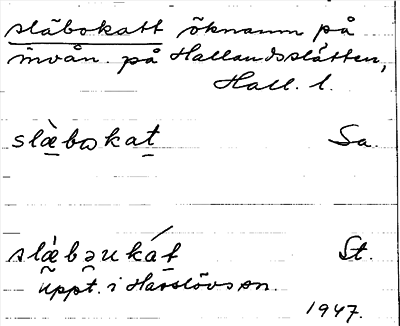 släbokatt öknamn på
invån. på Hallandsslätten,
Hall. l.
slæ̀bωkat Sa.
slæ̀bəukát St.
uppt. i Harslövs sn.
1947.